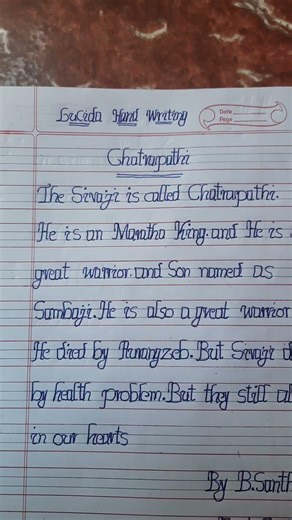 Lucida Hand Writing
Date
Page
Chatrarpathi
The Sivajji is called Chatrarpathi.
He is an Maratha King. and He is
great warrior. and Son named as
Sambaji. He is also a great warrior
He died by Aurangzeb. But Sivajji
by health problem. But they still
in our hearts
By B.Santh